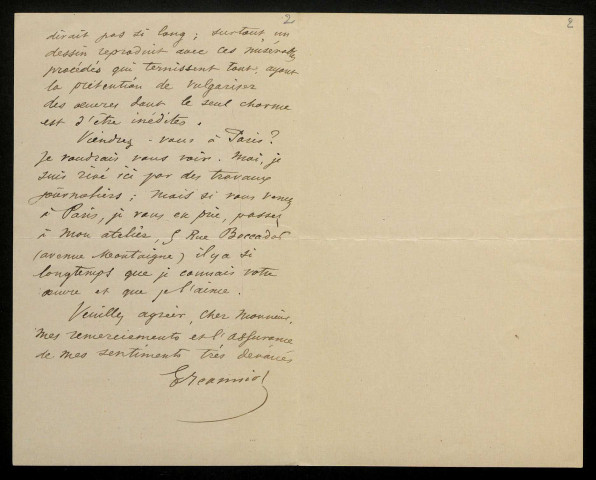 2
2
dirait pas si long ; surtout un
dessin reproduit avec ces misérables
procédés qui ternissent tout, ayant
la prétention de vulgariser
des œuvres dont le seul charme
est d'être inédites.
Viendrez-vous à Paris ?
Je voudrais vous voir. Moi, je
suis rivé ici par des travaux
journaliers ; mais si vous venez
à Paris, je vous en prie, passez
à mon atelier, 5 Rue Boccador
(avenue Montaigne) il y a si
longtemps que je connais votre
œuvre et que je l'aime.
Veuillez agréer, cher Monsieur,
mes remerciements et l'assurance
de mes sentiments très dévoués